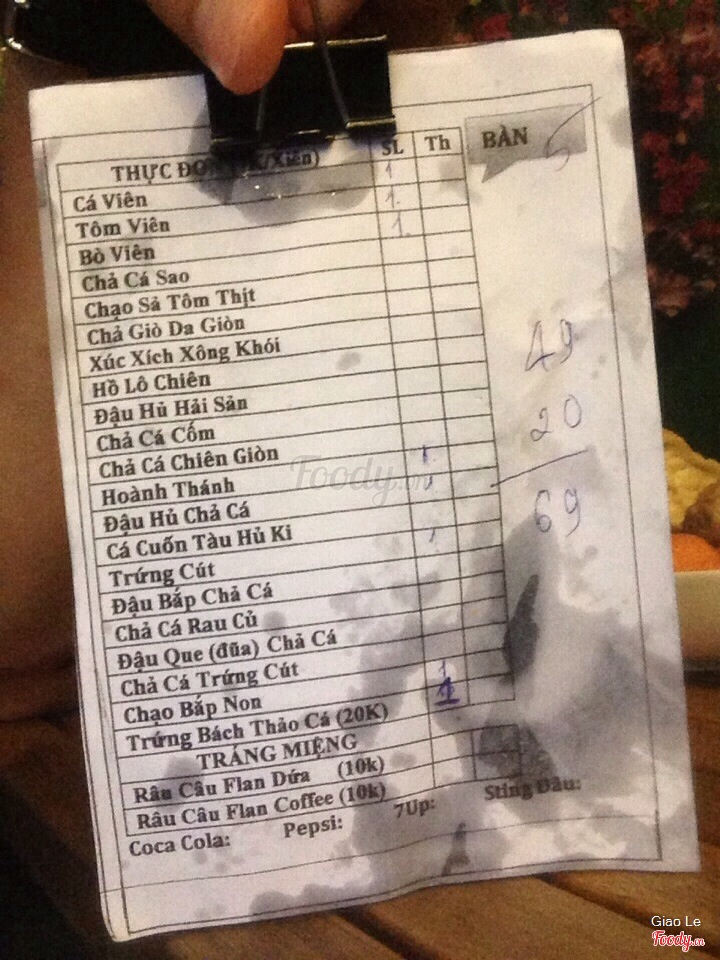 THỰC ĐƠN /Xiên) SL Th BÀN 5
Cá Viên 1
Tôm Viên 1.
Bò Viên 1.
Chả Cá Sao
Chạo Sả Tôm Thịt
Chả Giò Da Giòn
Xúc Xích Xông Khói
Hồ Lô Chiên 49
Đậu Hủ Hải Sản
Chả Cá Cốm 20
Chả Cá Chiên Giòn
Hoành Thánh 1
Đậu Hủ Chả Cá 1 69
Cá Cuốn Tàu Hủ Ki
Trứng Cút 1
Đậu Bắp Chả Cá
Chả Cá Rau Củ
Đậu Que (đũa) Chả Cá
Chả Cá Trứng Cút
Chạo Bắp Non 1
Trứng Bách Thảo Cá (20K) 1
TRÁNG MIỆNG
Râu Câu Flan Dứa (10k)
Râu Câu Flan Coffee (10k)
Coca Cola: Pepsi: 7Up: Sting Dâu:
Foody.vn
Giao Le
Foody.vn